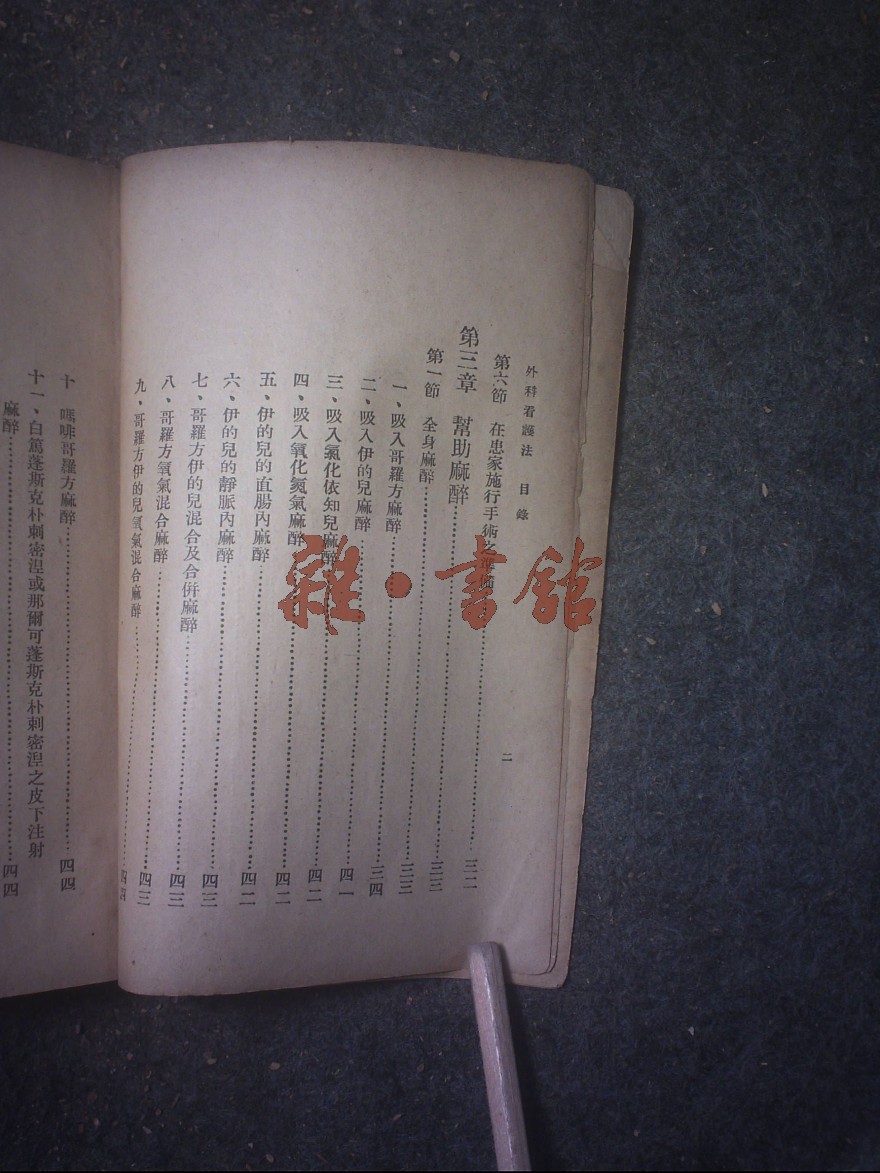 外科看護法 目錄
二
第六節 在患家施行手術之準備……三二
第三章 幫助麻醉……三三
第一節 全身麻醉……三三
一、吸入哥羅方麻醉……三四
二、吸入伊的兒麻醉……四一
三、吸入氯化依知兒麻醉……四二
四、吸入氧化氮氣麻醉……四二
五、伊的兒的直腸內麻醉……四二
六、伊的兒的靜脈內麻醉……四三
七、哥羅方伊的兒混合及合併麻醉……四三
八、哥羅方氧氣混合麻醉……四三
九、哥羅方伊的兒氧氣混合麻醉……四四
十、嗎啡哥羅方麻醉……四四
十一、白篤蓬斯克朴刺密涅或那爾可蓬斯克朴刺密涅之皮下注射
麻醉……四四
雜·書館